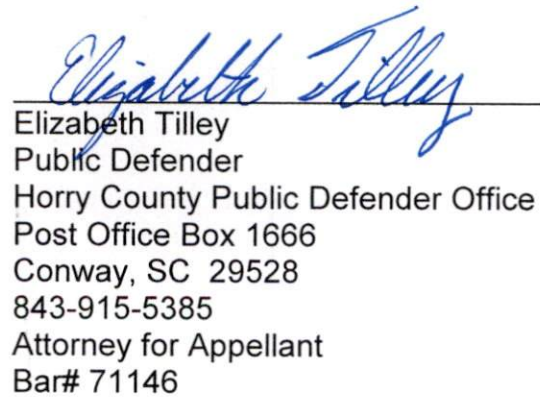 Elizabeth Tilley
Elizabeth Tilley
Public Defender
Horry County Public Defender Office
Post Office Box 1666
Conway, SC 29528
843-915-5385
Attorney for Appellant
Bar# 71146